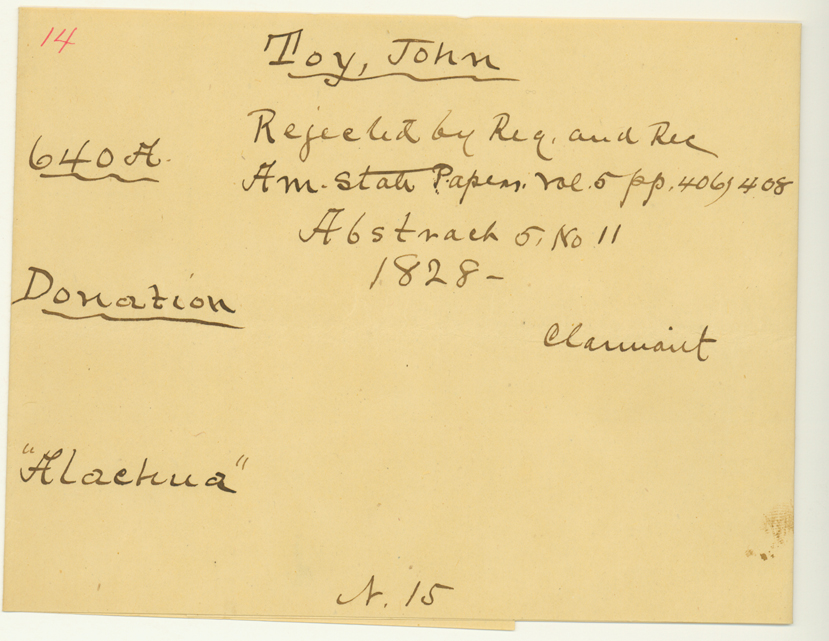 14
Toy, John
Rejected by Reg. and Rec
640 A.
Am. State Papers. Vol. 5 pp. 406, 408
Abstract 5, No 11
1828-
Donation
Claimant
"Alachua"
N. 15